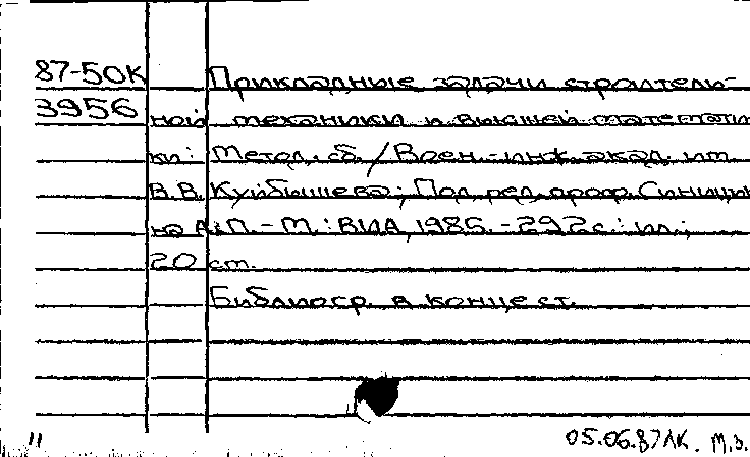 87-50К Прикладные задачи строитель-
3956 ной механики и высшей математи
ки: Метод. сб. / Воен.-инж. акад. им.
В.В. Куйбышева; Под ред. проф. Синицы
на А.П. - М.: ВИА, 1986. - 292с.: ил.;
20 см.
Библиогр. в конце ст.
05.06.87 ЛК. М.З.